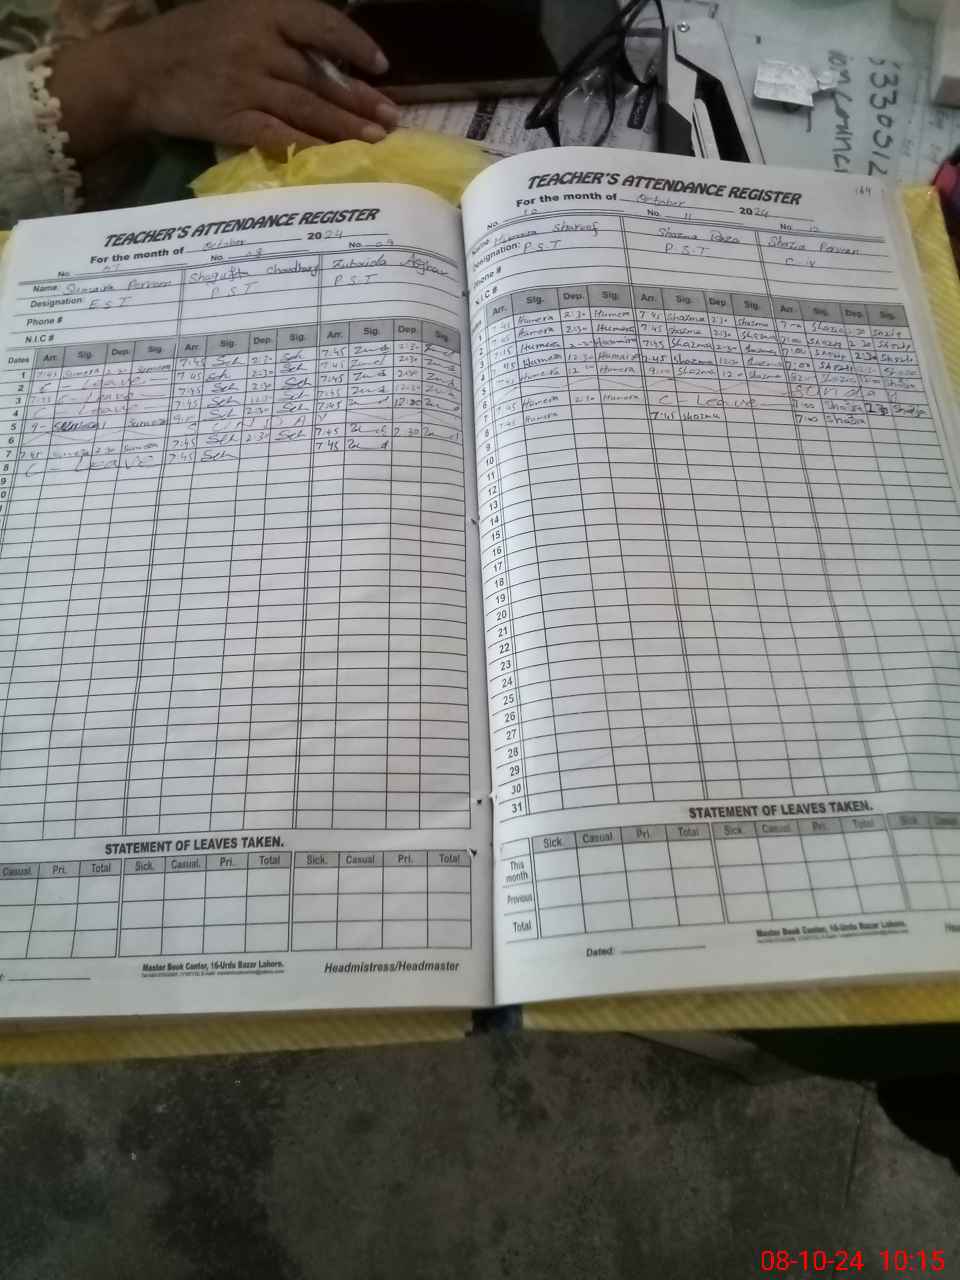 TEACHER'S ATTENDANCE REGISTER
For the month of October 2024
No. 07 No. 08 No. 09
Name: Sumaira Parveen Shagufta Chaudhary Zubaida Asghar
Designation: E.S.T P.S.T P.S.T
Phone #
N.I.C #
Dates Arr. Sig. Dep. Sig. Arr. Sig. Dep. Sig. Arr. Sig. Dep. Sig.
1 7:45 Sumera 2:30 Sumera 7:45 Seh 2:30 Seh 7:45 2:30
2 C - Leave - 7:45 Seh 2:30 Seh 7:45 2:30
3 C - Leave - 7:45 Seh 2:30 Seh 7:45 2:30
4 C - Leave - 7:45 Seh 12:30 Seh 7:45 12:30
5 Sumera Seh 2:30 Seh 7:45 12:30
6 S U N D A
7 7:45 Sumera 2:30 Sumera 7:45 Seh 2:30 Seh 7:45 2:30
8 C - Leave 7:45 Seh 7:45
9
STATEMENT OF LEAVES TAKEN.
Casual Pri. Total Sick. Casual. Pri. Total Sick. Casual Pri. Total
Master Book Center, 16-Urdu Bazar Lahore.
Headmistress/Headmaster
169
TEACHER'S ATTENDANCE REGISTER
For the month of October 2024
No. 10 No. 11 No. 12
Name: Humera Shareef Shazma Raza Shazia Parveen
Designation: P.S.T P.S.T C-IV
Phone #
N.I.C #
Arr. Sig. Dep. Sig. Arr. Sig. Dep. Sig. Arr. Sig. Dep. Sig.
1 7:45 Humera 2:30 Humera 7:45 Shazma 2:30 Shazma 7:00 Shazia 2:30 Shazia
2 7:45 Humera 2:30 Humera 7:45 Shazma 2:30 Shazma 7:00 Shazia 2:30 Shazia
3 7:45 Humera 2:30 Humera 7:45 Shazma 2:30 Shazma 7:00 Shazia 2:30 Shazia
4 7:45 Humera 12:30 Humera 7:45 Shazma 12:30 Shazma 7:00 Shazia
5 7:45 Humera 12:00 Humera 9:00 Shazma 12:00 Shazma Shazia Shazia
6
7 7:45 Humera 2:30 Humera C - Leave - 7:00 Shazia 2:30 Shazia
8 7:45 Humera 7:45 Shazma 7:00 Shazia
9
10
11
12
13
14
15
16
17
18
19
20
21
22
23
24
25
26
27
28
29
30
31
STATEMENT OF LEAVES TAKEN.
Sick. Casual Pri. Total Sick. Casual. Pri. Total Sick. Casual
This month
Previous
Total
Dated:
Master Book Center, 16-Urdu Bazar Lahore.
08-10-24 10:15